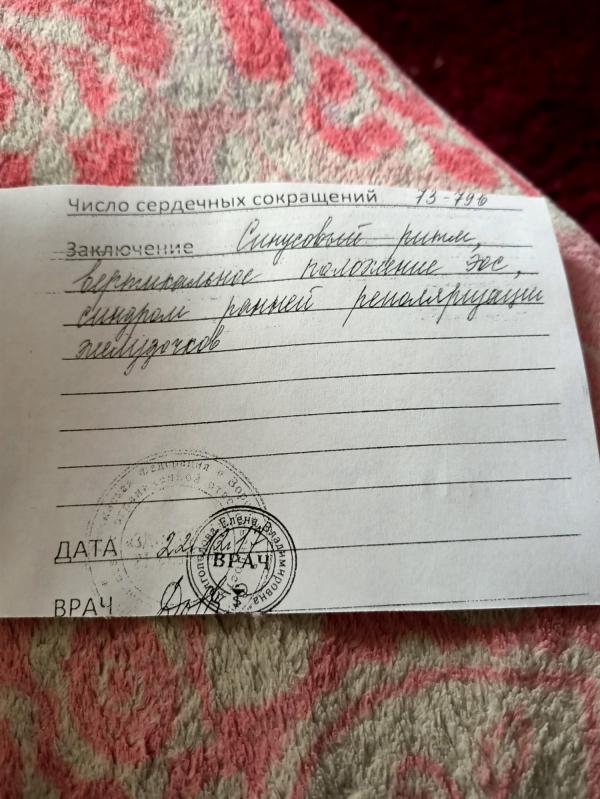 Число сердечных сокращений 73-79б
Заключение Синусовый ритм,
вертикальное положение эос,
синдром ранней реполяризации
желудочков
ДАТА 22.
Елена Владимировна
ВРАЧ
ВРАЧ